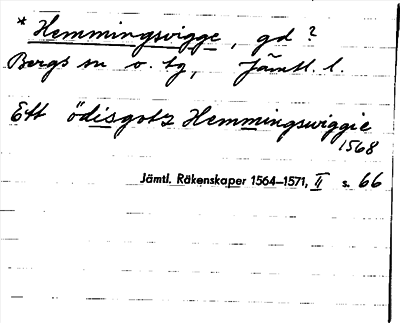 * Hemmingsvigge, gd ?
Bergs sn o. tg, Jämtl. l.
Ett ödisgotz Hemmingswiggie
1568
Jämtl. Räkenskaper 1564–1571, II s. 66